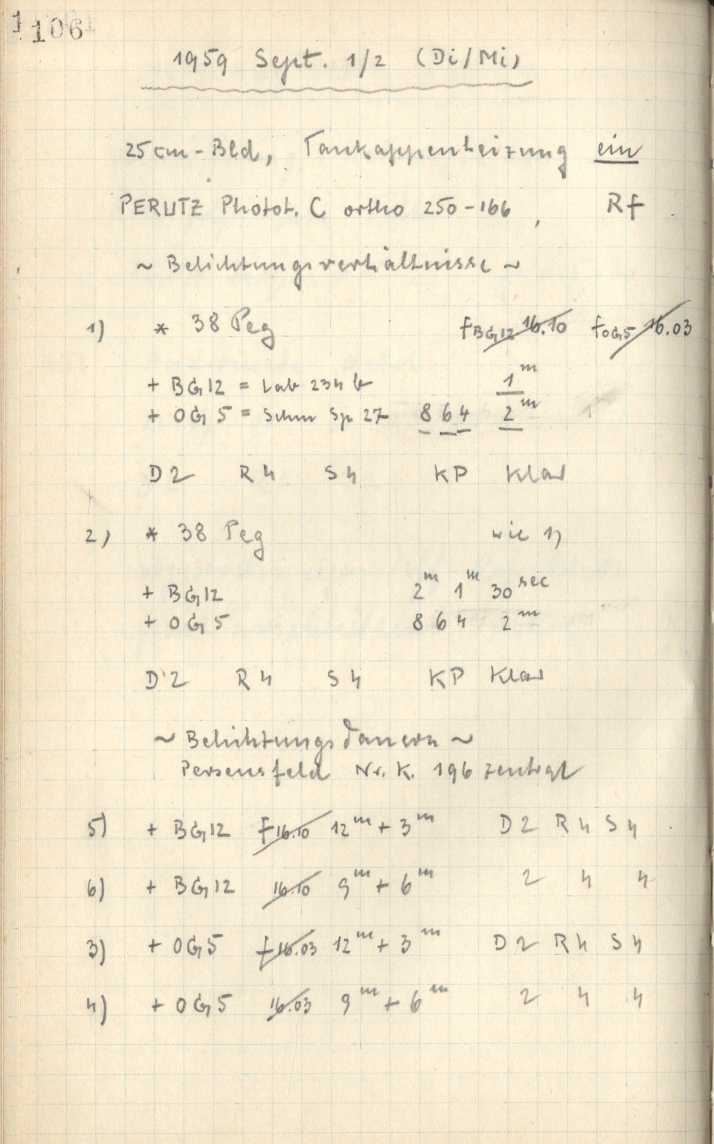 106
1959 Sept. 1/2 (Di/Mi)
25cm-Bld, Taukappenheizung ein
PERUTZ Phot. C ortho 250-166, Rf
~ Belichtungsverhältnisse ~
1) * 38 Peg fBG12 16.10 fOG5 16.03
+ BG12 = Lab 234 b 1m
+ OG5 = Schm Sp 27 8 6 4 2m
D2 R4 S4 KP Klar
2) * 38 Peg wie 1)
+ BG12 2m 1m 30sec
+ OG5 8 6 4 2m
D2 R4 S4 KP Klar
~ Belichtungsdauern ~
Perseusfeld Nr. K. 196 zentral
5) + BG12 f16.10 12m + 3m D2 R4 S4
6) + BG12 16.10 9m + 6m 2 4 4
3) + OG5 f16.03 12m + 3m D2 R4 S4
4) + OG5 16.03 9m + 6m 2 4 4